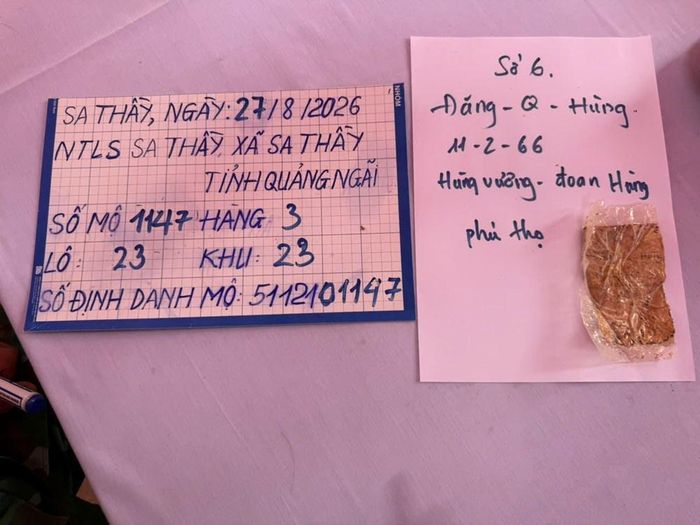 SA THẦY, NGÀY: 27/8/2026
NTLS SA THẦY XÃ SA THẦY
TỈNH QUẢNG NGÃI
SỐ MỘ 1147 HÀNG 3
LÔ: 23 KHU: 23
SỐ ĐỊNH DANH MỘ: 5112101147
NHÓM
Số 6.
Đăng - Q - Hùng.
11-2-66
Hùng vương - đoan Hùng
phú thọ